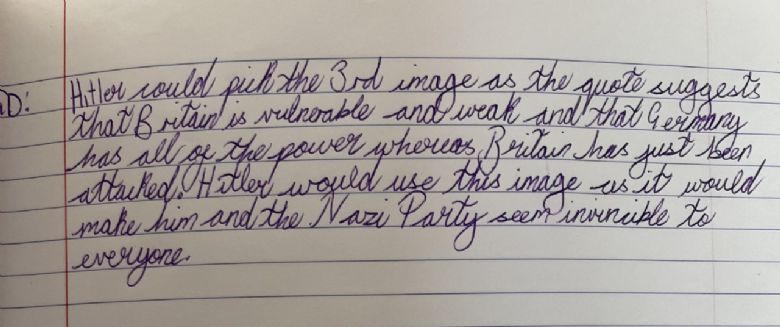 D: Hitler could pick the 3rd image as the quote suggests
that Britain is vulnerable and weak and that Germany
has all of the power whereas Britain has just been
attacked. Hitler would use this image as it would
make him and the Nazi Party seem invincible to
everyone.